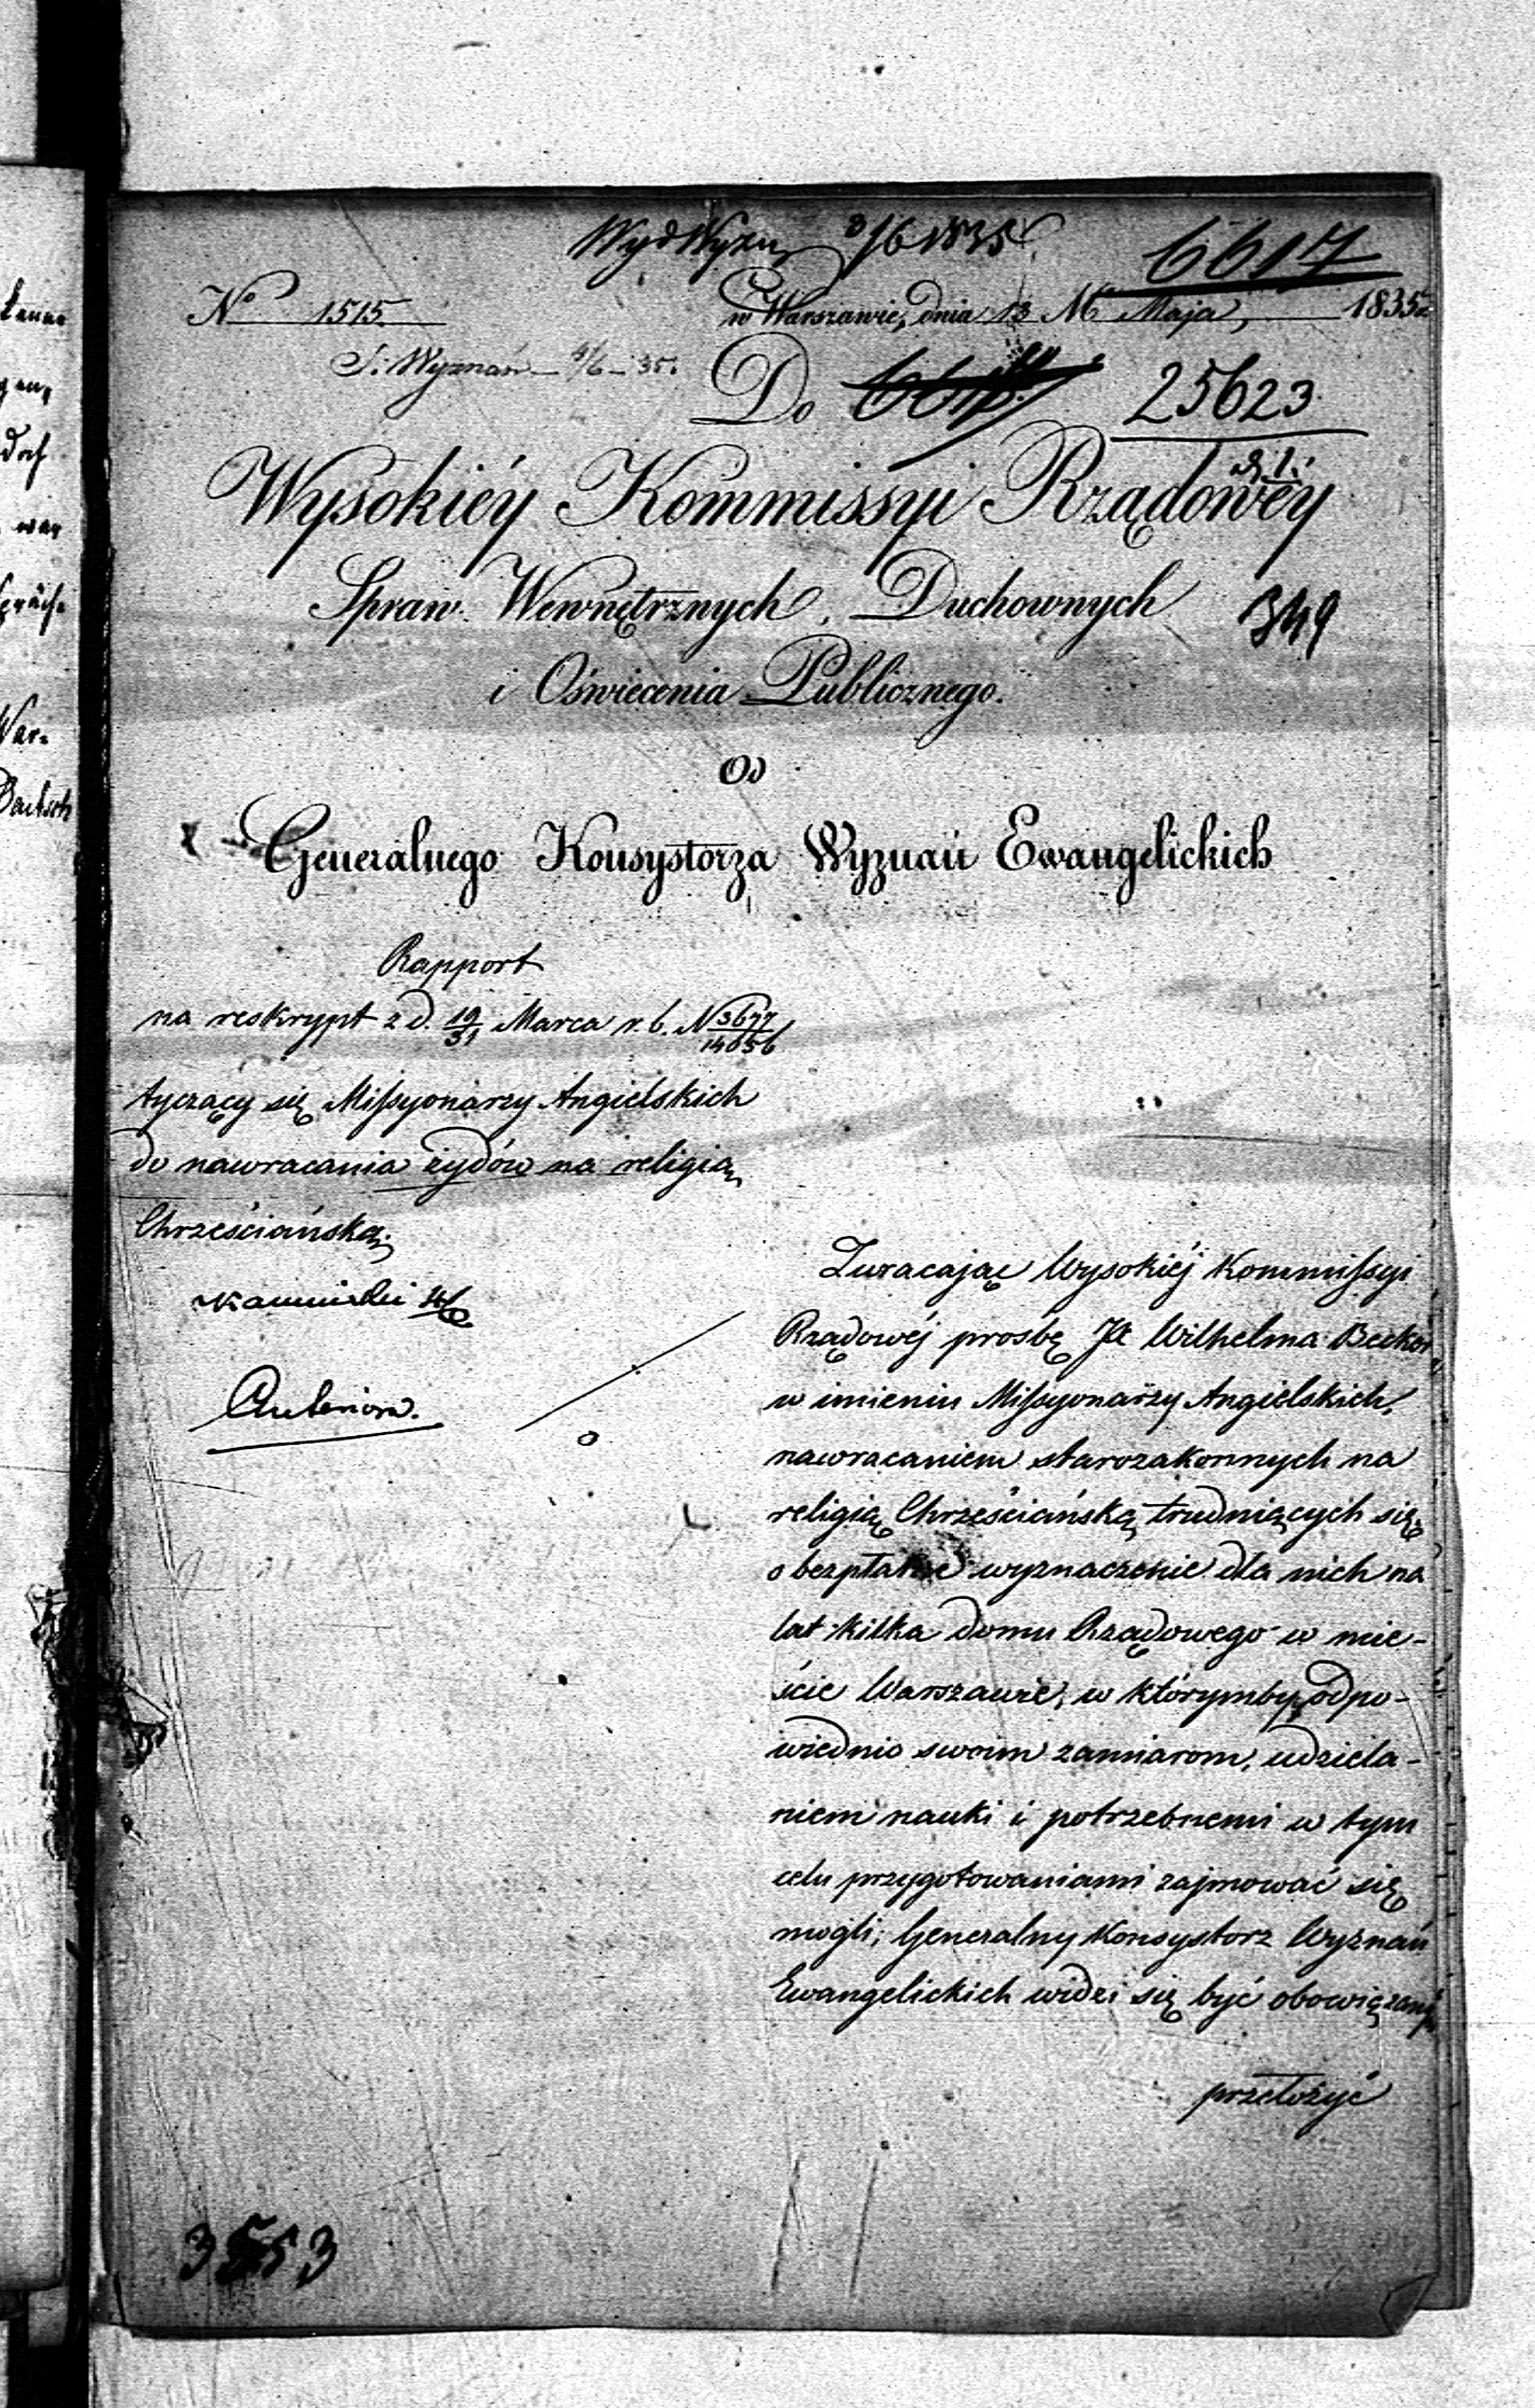 Wyd Wyzn 3/6 1835
6617
No 1515
w Warszawie, dnia 13 M Maja, 1835
S. Wyznań 4/6 - 35.
Do 25623
Wysokiéy Kommissyi Rządowéy
Spraw Wewnętrznych, Duchownych
349
i Oświecenia Publicznego.
Od
Generalnego Konsystorza Wyznań Ewangelickich
Rapport
na reskrypt z d. 19/31 Marca r. b. N 3677/14056
tyczący się Missyonarzy Angielskich
do nawracania żydów na religią
Chrześciańską.
Anteriora.
Zwracając Wysokiéj Kommissyi
Rządowéj prośbę JP Wilhelma Becker
w imieniu Missyonarzy Angielskich,
nawracaniem starozakonnych na
religią Chrześciańską trudniących się,
o bezpłatne wyznaczenie dla nich na
lat kilka domu Rządowego w mie-
ście Warszawie, w którymby odpo-
wiednio swoim zamiarom, udziela-
niem nauki i potrzebnemi w tym
celu przygotowaniami zajmować się
mogli; Generalny Konsystorz Wyznań
Ewangelickich widzi się być obowiązanym
przełożyć
3553